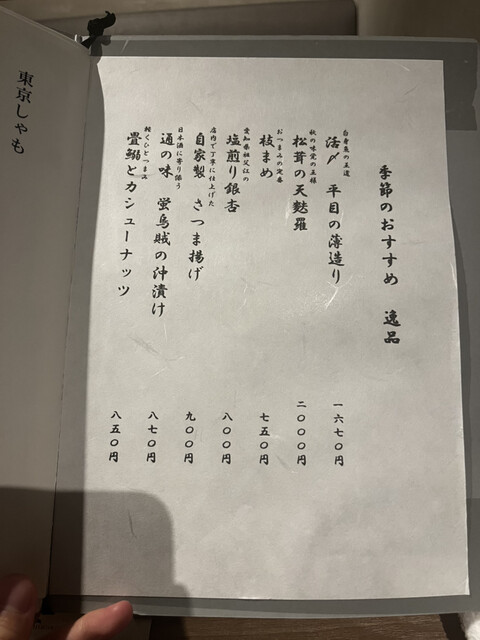 東京しゃも
季節のおすすめ 逸品
白身魚の王道
活〆 平目の薄造り 一六七〇円
秋の味覚の王様
松茸の天麩羅 二〇〇〇円
おつまみの定番
枝まめ 七五〇円
愛知県祖父江の
塩煎り銀杏 八〇〇円
店内で丁寧に仕上げた
自家製 さつま揚げ 九〇〇円
日本酒に寄り添う
通の味 蛍烏賊の沖漬け 八七〇円
軽くひとつまみ
畳鰯とカシューナッツ 八五〇円